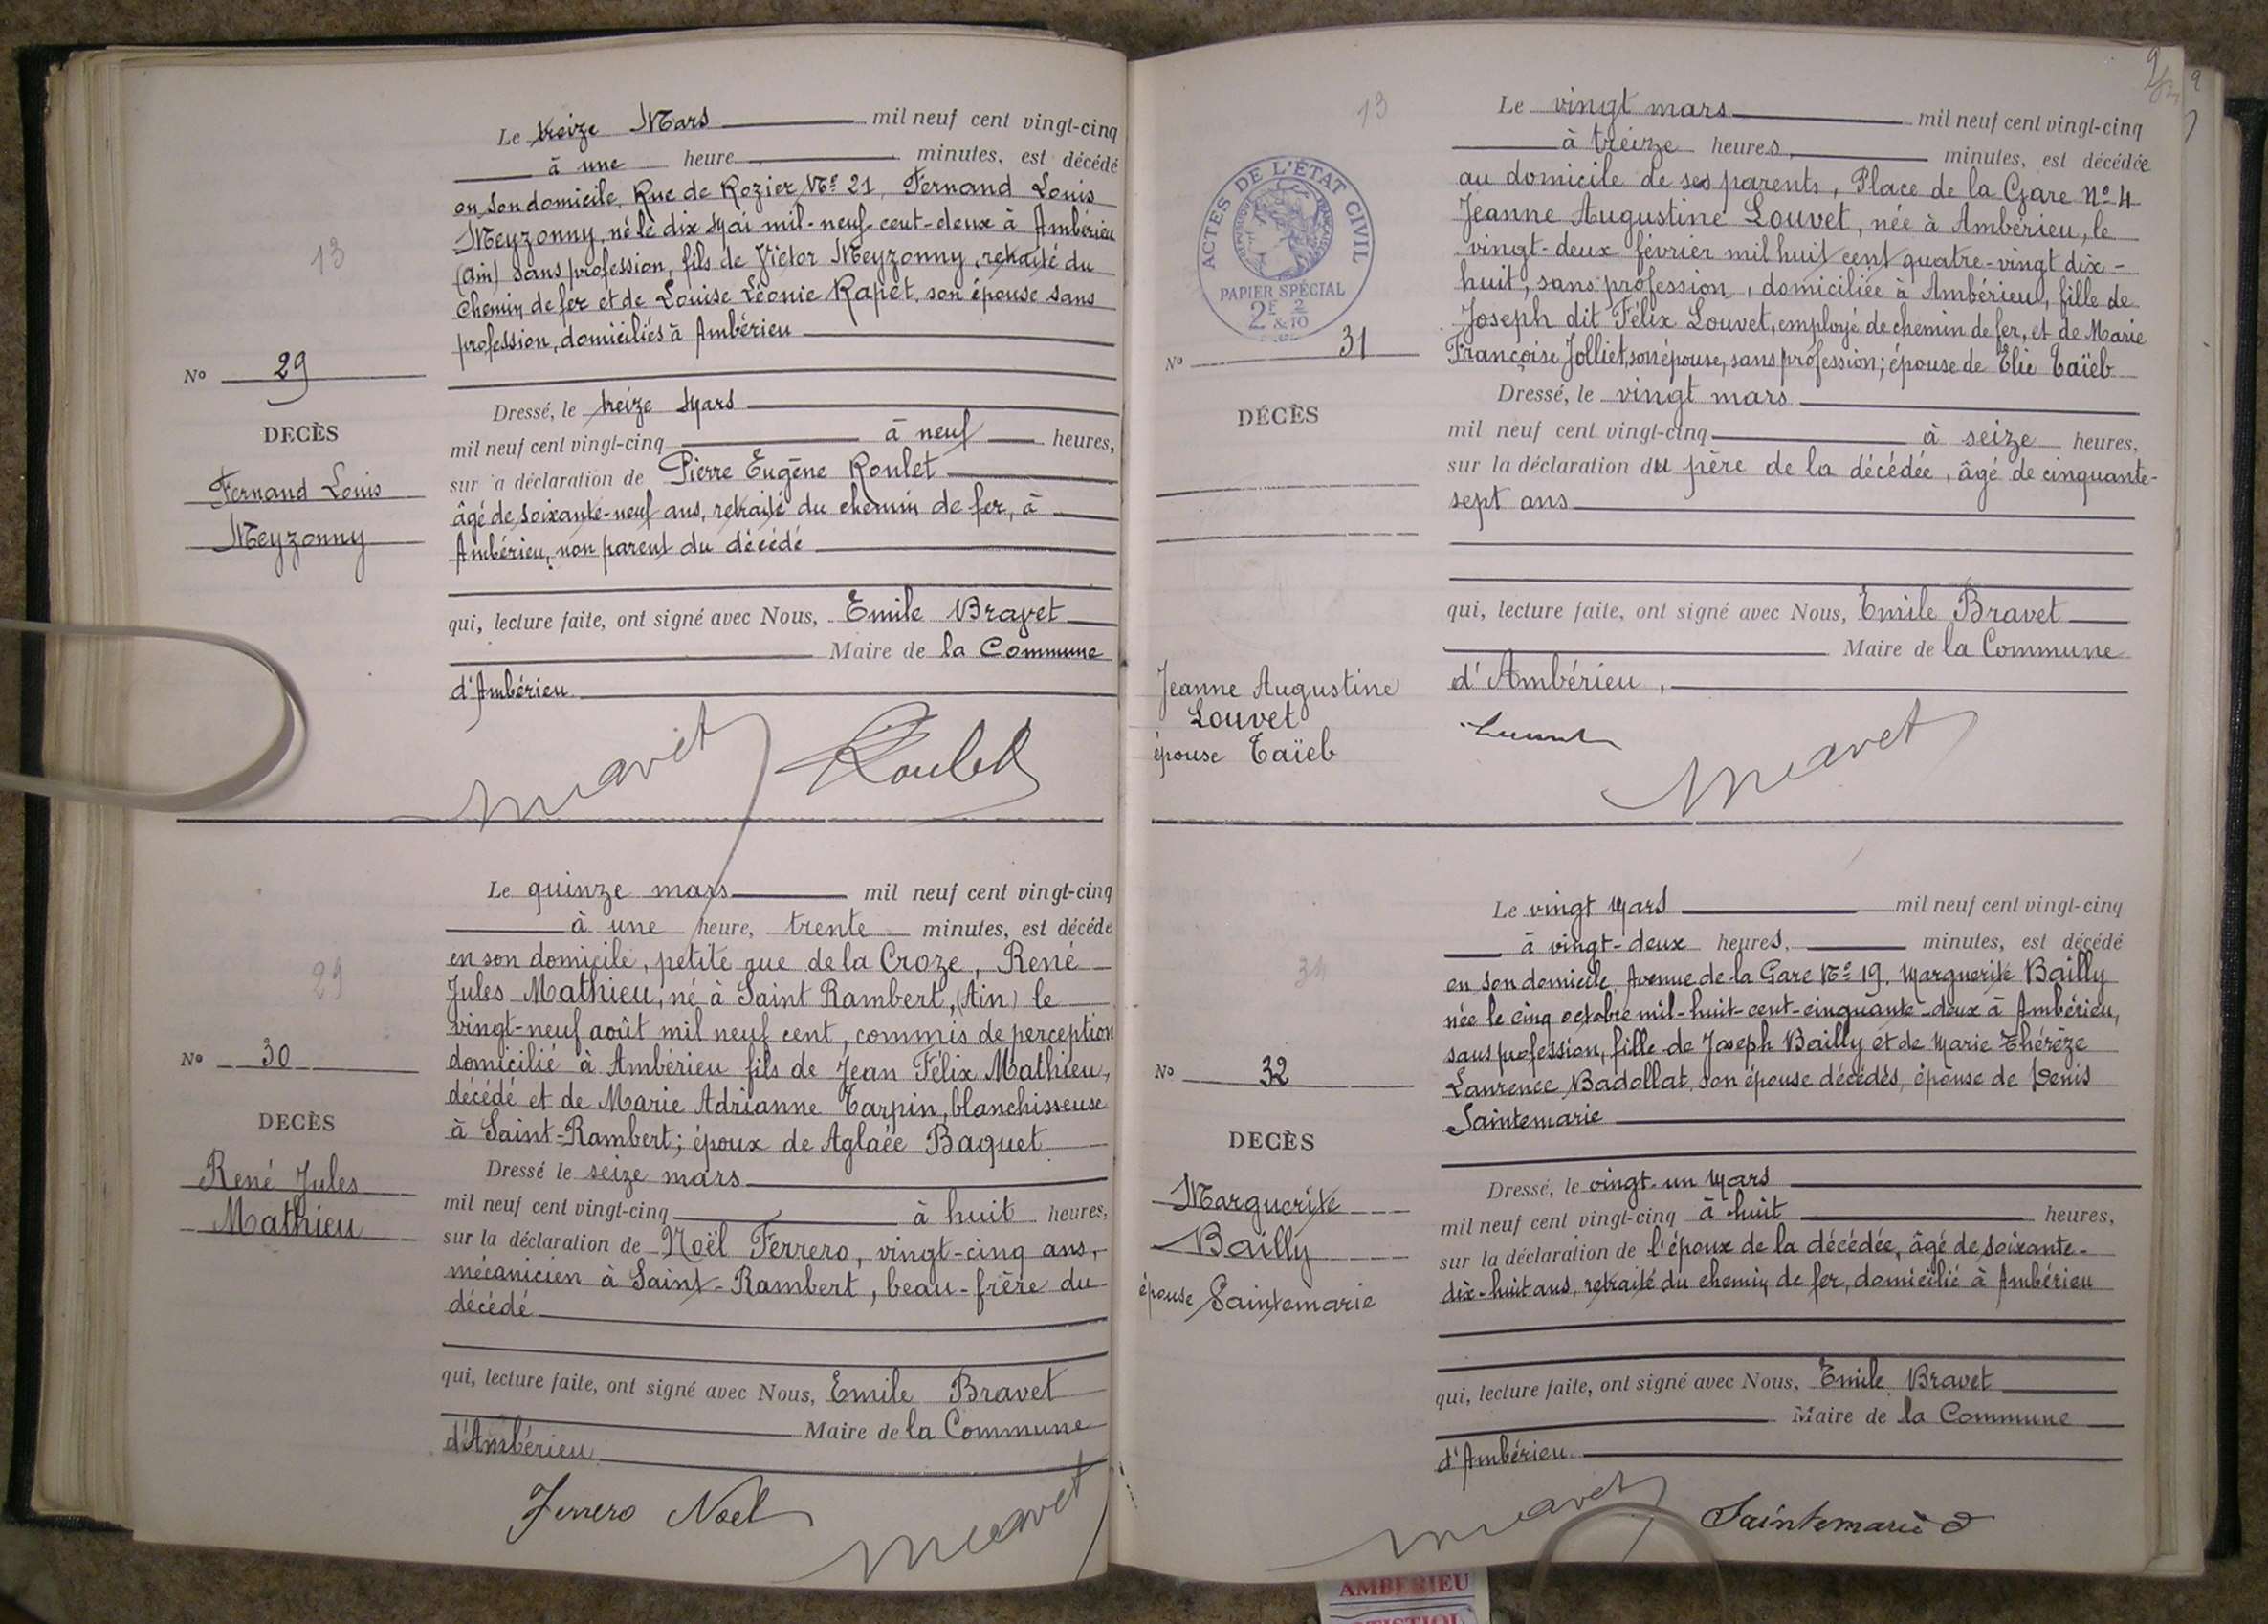 13
Le treize Mars mil neuf cent vingt-cinq
à une heure minutes, est décédé
en son domicile, Rue de Rozier, No 21, Fernand Louis
Meyzonny, né le dix Mai mil-neuf-cent-deux à Ambérieu
(Ain) sans profession, fils de Victor Meyzonny, retraité du
chemin de fer et de Louise Léonie Rapet, son épouse sans
profession, domiciliés à Ambérieu
No 29
DECÈS
Fernand Louis
Meyzonny
Dressé, le treize Mars
mil neuf cent vingt-cinq à neuf heures,
sur a déclaration de Pierre Eugène Roulet
âgé de soixante-neuf ans, retraité du chemin de fer, à
Ambérieu, non parent du décédé
qui, lecture faite, ont signé avec Nous, Emile Bravet
Maire de la Commune
d'Ambérieu
Bravet Roulet
29
Le quinze mars mil neuf cent vingt-cinq
à une heure, trente minutes, est décédé
en son domicile, petite rue de la Croze, René
Jules Mathieu, né à Saint Rambert, (Ain) le
vingt-neuf août mil neuf cent, commis de perception
domicilié à Ambérieu fils de Jean Félix Mathieu,
décédé et de Marie Adrianne Tarpin, blanchisseuse
à Saint-Rambert; époux de Aglaée Baquet
No 30
DECÈS
René Jules
Mathieu
Dressé le seize mars
mil neuf cent vingt-cinq à huit heures,
sur la déclaration de Noël Ferrero, vingt-cinq ans,
mécanicien à Saint-Rambert, beau-frère du
décédé
qui, lecture faite, ont signé avec Nous, Emile Bravet
Maire de la Commune
d'Ambérieu
Ferrero Noel Bravet
13
ACTES DE L'ÉTAT CIVIL
RÉPUBLIQUE FRANÇAISE
PAPIER SPÉCIAL
2F & 2/10
Le vingt mars mil neuf cent vingt-cinq
à treize heures, minutes, est décédée
au domicile de ses parents, Place de la Gare No 4
Jeanne Augustine Louvet, née à Ambérieu, le
vingt-deux février mil huit cent quatre-vingt dix-
huit, sans profession, domiciliée à Ambérieu, fille de
Joseph dit Félix Louvet, employé de chemin de fer, et de Marie
Françoise Jolliet, son épouse, sans profession; épouse de Elie Taïeb
No 31
DÉCÈS
Jeanne Augustine
Louvet
épouse Taïeb
Dressé, le vingt mars
mil neuf cent vingt-cinq à seize heures,
sur la déclaration du père de la décédée, âgé de cinquante-
sept ans
qui, lecture faite, ont signé avec Nous, Emile Bravet
Maire de la Commune
d'Ambérieu,
Bravet
Le vingt Mars mil neuf cent vingt-cinq
à vingt-deux heures, minutes, est décédé
en son domicile, Avenue de la Gare No 19, Marguerite Bailly
née le cinq octobre mil-huit-cent-cinquante-deux à Ambérieu,
sans profession, fille de Joseph Bailly et de Marie Thérèze
Laurence Badollat, son épouse décédés, épouse de Denis
Saintemarie
No 32
DECÈS
Marguerite
Bailly
épouse Saintemarie
Dressé, le vingt-un Mars
mil neuf cent vingt-cinq à huit heures,
sur la déclaration de l'époux de la décédée, âgé de soixante-
dix-huit ans, retraité du chemin de fer, domicilié à Ambérieu
qui, lecture faite, ont signé avec Nous, Emile Bravet
Maire de la Commune
d'Ambérieu
Bravet Saintemarie
AMBERIEU